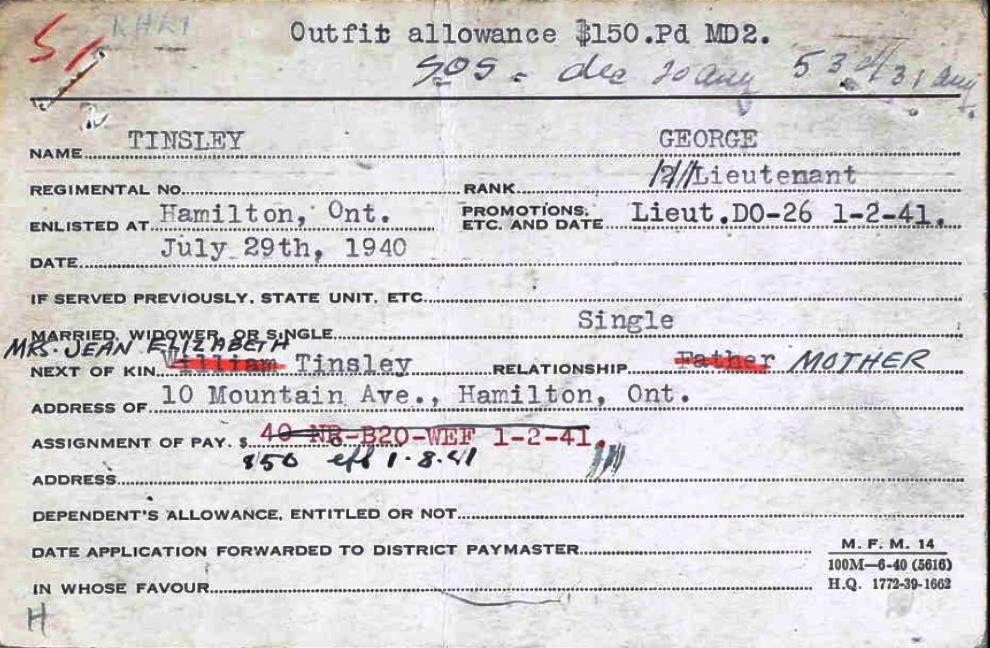 RHLI
Outfit allowance $150.Pd MD2.
SOS - dec 20 aug 53 eff 31 aug
NAME TINSLEY GEORGE
REGIMENTAL NO. RANK /2/Lieutenant
ENLISTED AT Hamilton, Ont. PROMOTIONS, ETC. AND DATE Lieut.DO-26 1-2-41.
DATE July 29th, 1940
IF SERVED PREVIOUSLY, STATE UNIT, ETC.
MARRIED, WIDOWER, OR SINGLE Single
MRS. JEAN ELIZABETH
NEXT OF KIN William Tinsley RELATIONSHIP Father MOTHER
ADDRESS OF 10 Mountain Ave., Hamilton, Ont.
ASSIGNMENT OF PAY. $ 40 NR-B20-WEF 1-2-41.
$50 eff 1.8.41
ADDRESS
DEPENDENT'S ALLOWANCE, ENTITLED OR NOT
DATE APPLICATION FORWARDED TO DISTRICT PAYMASTER
IN WHOSE FAVOUR
M. F. M. 14
100M—6-40 (5616)
H.Q. 1772-39-1662
H